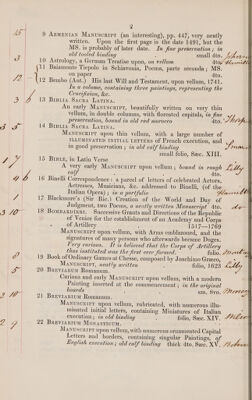 2
9 Armenian Manuscript (an interesting), pp. 447, very neatly
written. Upon the first page is the date 1491, but the
MS. is probably of later date. In fine preservation; in
old tooled binding small 4to.
10 Astrology, a German Treatise upon, on vellum 4to.
11 Baiamonte Tiepolo in Schiavonia, Poema, parte seconda; MS.
on paper 4to.
12 Bembo (Ant.) His last Will and Testament, upon vellum, 1741.
In a column, containing three paintings, representing the
Crucifixion, &c.
13 Biblia Sacra Latina.
An early Manuscript, beautifully written on very thin
vellum, in double columns, with florated capitals, in fine
preservation, bound in old red morocco 4to.
14 Biblia Sacra Latina.
Manuscript upon thin vellum, with a large number of
illuminated initial letters of French execution, and
in good preservation; in old calf binding
small folio, Sæc. XIII.
15 Bible, in Latin Verse
A very early Manuscript upon vellum; bound in rough
calf 4to.
16 Binelli Correspondence: a parcel of letters of celebrated Actors,
Actresses, Musicians, &c. addressed to Binelli, (of the
Italian Opera); in a portfolio
17 Blackmore's (Sir Ric.) Creation of the World and Day of
Judgment, two Poems, a neatly written Manuscript 4to.
18 Bombardieri. Successive Grants and Directions of the Republic
of Venice for the establishment of an Academy and Corps
of Artillery 1517—1769
Manuscript upon vellum, with Arms emblazoned, and the
signatures of many persons who afterwards became Doges.
Very curious. It is believed that the Corps of Artillery
thus instituted was the first ever formed. folio,
19 Book of Ordinary Games at Chesse, composed by Joachimo Græco,
Manuscript, neatly written folio, 1623
20 Breviarium Romanum.
Curious and early Manuscript upon vellum, with a modern
Painting inserted at the commencement; in the original
boards sm. 8vo.
21 Breviarium Romanum.
Manuscript upon vellum, rubricated, with numerous illu-
minated initial letters, containing Miniatures of Italian
execution; in old binding folio, Sæc. XIV.
22 Breviarium Monasticum.
Manuscript upon vellum, with numerous ornamented Capital
Letters and borders, containing singular Paintings, of
English execution; old calf binding thick 4to. Sæc. XV.